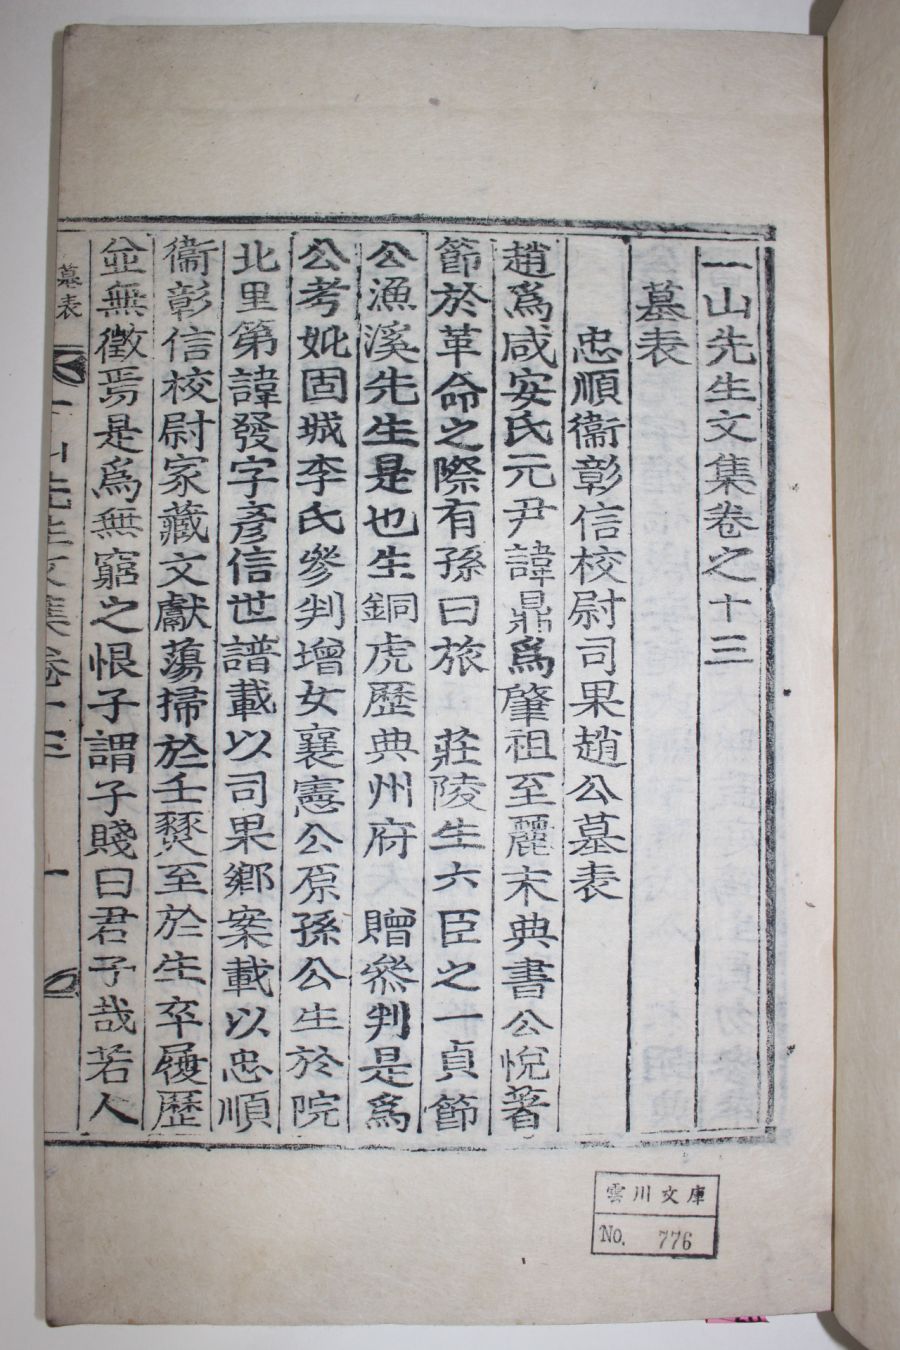 一山先生文集卷之十三
墓表
忠順衞彰信校尉司果趙公墓表
趙爲咸安氏元尹諱鼎爲肇祖至麗末典書公悅著
節於革命之際有孫曰旅 莊陵生六臣之一貞節
公漁溪先生是也生銅虎歷典州府 贈叅判是爲
公考妣固城李氏參判增女襄憲公原孫公生於院
北里第諱發字彥信世譜載以司果鄕案載以忠順
衞彰信校尉家藏文獻蕩掃於壬燹至於生卒履歷
並無徵焉是爲無窮之恨子謂子賤曰君子哉若人
墓表
一山先生文集卷十三
一
雲川文庫
No. 776